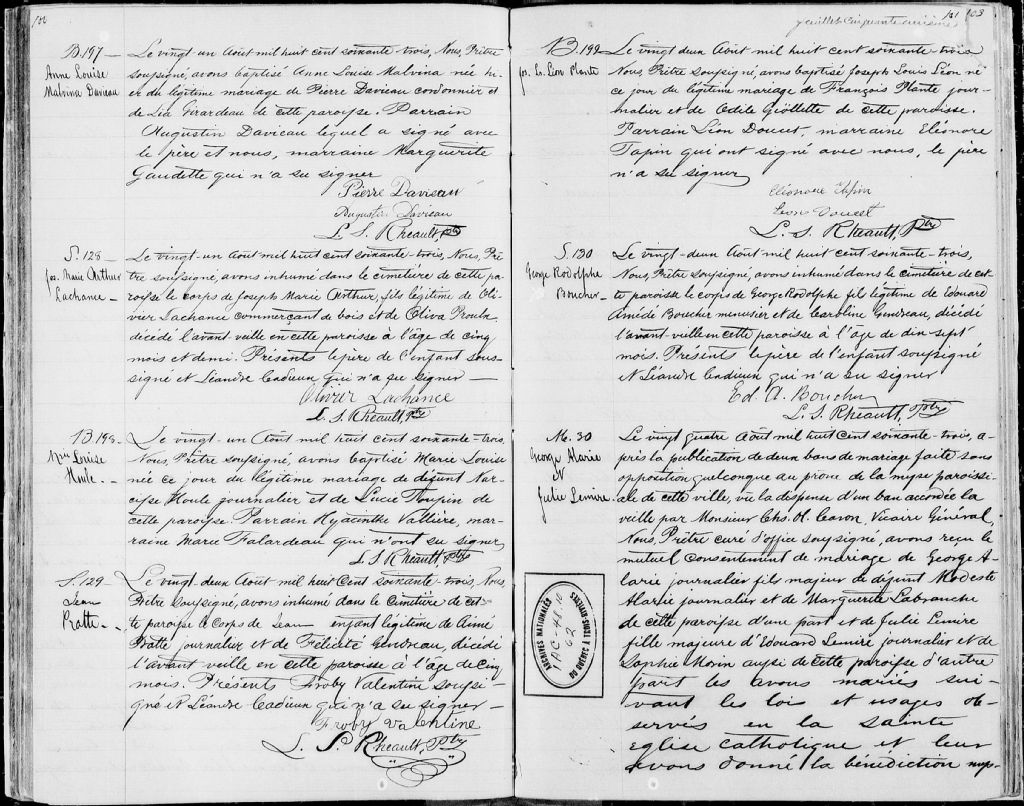 102
B. 197
Anne Louise
Malvina Davieau
Le vingt-un Août mil huit cent soixante-trois, Nous, Prêtre
soussigné, avons baptisé Anne Louise Malvina née hi-
er du légitime mariage de Pierre Davieau cordonnier et
de Léa Girardeau de cette paroisse. Parrain
Augustin Davieau lequel a signé avec
le père et nous, marraine Marguerite
Gaudette qui n'a su signer
Pierre Davieau
Augustin Davieau
L. S. Rheault, Ptre
S. 128
Jos. Marie Arthur
Lachance
Le vingt-un Août mil huit cent soixante-trois, Nous, Prê-
tre soussigné, avons inhumé dans le cimetière de cette pa-
roisse le corps de Joseph Marie Arthur, fils légitime de Oli-
vier Lachance commerçant de bois et de Oliva Proulx
décédé l'avant veille en cette paroisse à l'âge de cinq
mois et demi. Présents le père de l'enfant sous-
signé et Léandre Cadieux qui n'a su signer
Olivier Lachance
L. S. Rheault, Ptre
B. 198.
Mie Louise
Houle.
Le vingt-un Août mil huit cent soixante-trois,
Nous, Prêtre soussigné, avons baptisé Marie Louise
née ce jour du légitime mariage de défunt Nar-
cisse Houle journalier et de Lucie Toupin de
cette paroisse. Parrain Hyacinthe Vallière, mar-
raine Marie Falardeau qui n'ont su signer
L. S. Rheault, Ptre
S. 129
Jean
Ratte.
Le vingt-deux Août mil huit cent soixante-trois, Nous,
Prêtre soussigné, avons inhumé dans le cimetière de cet-
te paroisse le corps de Jean enfant légitime de Aimé
Ratte journalier et de Félicité Gendreau, décédé
l'avant veille en cette paroisse à l'âge de cinq
mois. Présents Froby Valentine soussi-
gné et Léandre Cadieux qui n'a su signer
Froby Valentine
L. S. Rheault, Ptre
feuillet cinquante unième
101 103
B. 199
Jos. Ls. Léon Plante
Le vingt deux Août mil huit cent soixante-trois
Nous, Prêtre soussigné, avons baptisé Joseph Louis Léon né
ce jour du légitime mariage de François Plante jour-
nalier et de Odile de cette paroisse.
Parrain Léon Doucet, marraine Eléonore
Tapin qui ont signé avec nous, le père
n'a su signer
Eléonore Tapin
Léon Doucet
L. S. Rheault, Ptre
S. 130
George Rodolphe
Boucher
Le vingt-deux Août mil huit cent soixante-trois,
Nous, Prêtre soussigné, avons inhumé dans le cimetière de cet-
te paroisse le corps de George Rodolphe fils légitime de Edouard
Amédé Boucher menusier et de Caroline Gendreau, décidé
l'avant-veille en cette paroisse à l'âge de dix sept
mois. Présents le père de l'enfant soussigné
et Léandre Cadieux qui n'a su signer
Ed. A. Boucher
L. S. Rheault, Ptre
M. 30
George Alarie
et
Julie Lemire
Le vingt quatre Août mil huit cent soixante-trois, a-
près la publication de deux bans de mariage faite sans
opposition quelconque au prone de la messe paroissi-
ale de cette ville, vu la dispense d'un ban accordée la
veille par Monsieur Chs. O. Caron, Vicaire Général,
Nous, Prêtre curé d'office soussigné, avons reçu le
mutuel consentement de mariage de George A-
larie journalier fils majeur de défunt Modeste
Alarie journalier et de Marguerite Labranche
de cette paroisse d'un part et de Julie Lemire
fille majeure d'Edouard Lemire journalier et de
Sophie Morin aussi de cette paroisse d'autre
part les avons mariés sui-
vant les lois et usages ob-
servés en la Sainte
Eglise catholique et leur
avons donné la bénédiction nup-
ARCHIVES NATIONALES
DU QUÉBEC À TROIS-RIVIÈRES